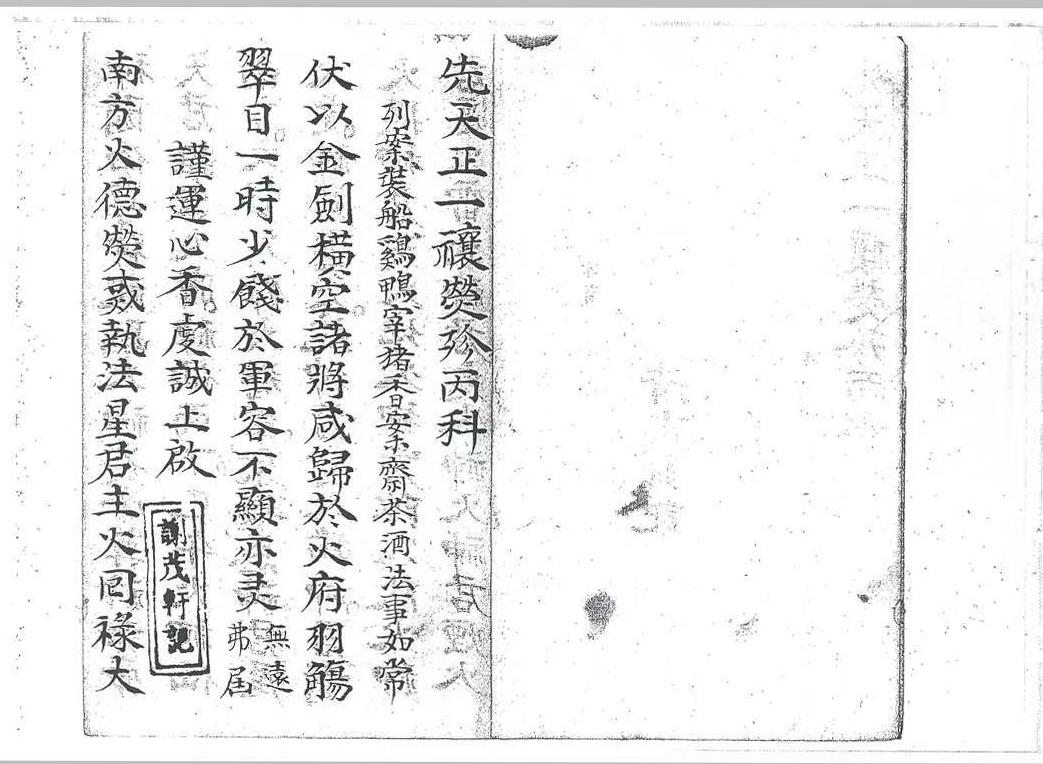 先天正一禳熒殄丙科
列案裝船鷄鴨宰猪香案齋茶酒法事如常
伏以金劍橫空諸將咸歸於火府羽觴
翠目一時少餞於軍容不顯亦灵無遠弗届
謹運心香虔誠上啟
謝茂軒記
南方火德熒惑執法星君主火囘祿大